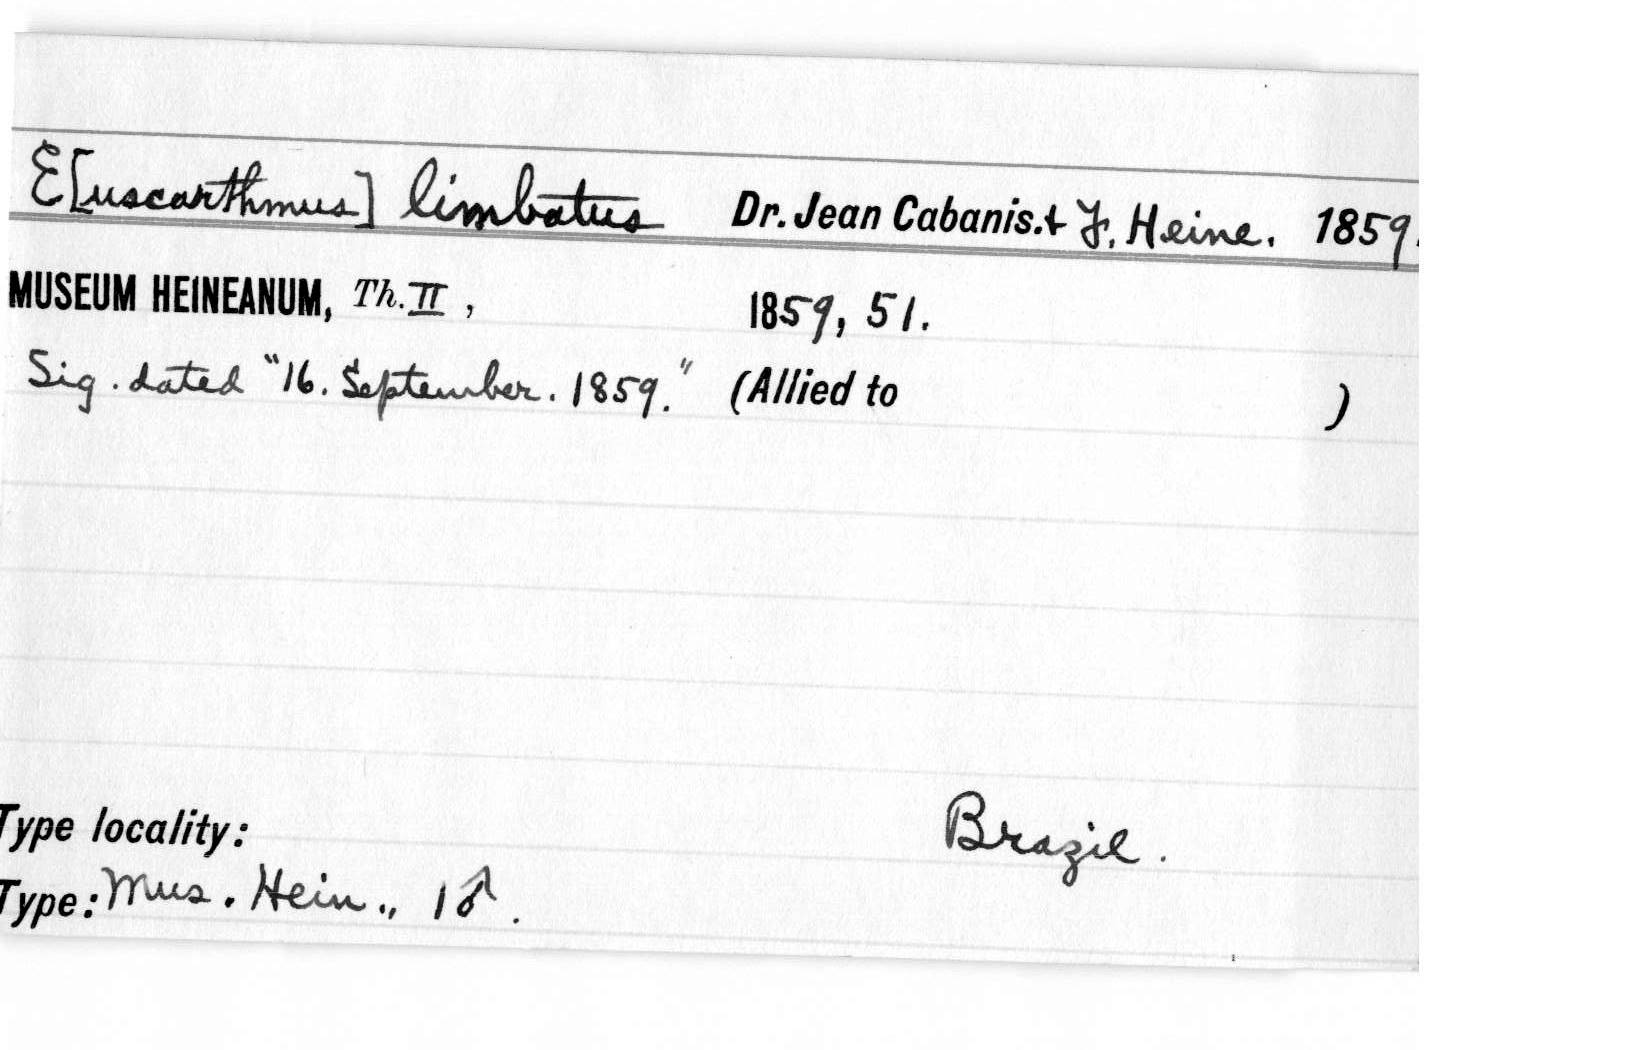 E[uscarthmus] limbatus Dr. Jean Cabanis.+ F. Heine. 1859.
MUSEUM HEINEANUM, Th. II , 1859, 51.
Sig. dated "16. September. 1859." (Allied to )
Type locality: Brazil.
Type: Mus. Hein., 1♂.